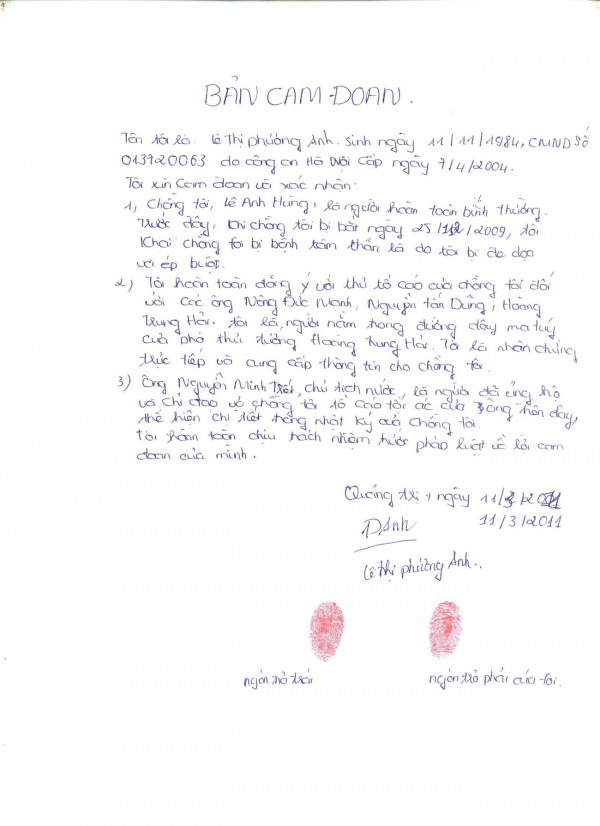 BẢN CAM ĐOAN.
Tên tôi là: Lê Thị Phương Anh. Sinh ngày 11/11/1984, CMND Số
013720063 do công an Hà Nội Cấp ngày 7/4/2004.
Tôi xin Cam đoan và xác nhận:
1, Chồng tôi, Lê Anh Hùng, là người hoàn toàn bình thường.
Trước đây, khi chồng tôi bị bắt ngày 25/12/2009, tôi
Khai chồng tôi bị bệnh tâm thần là do tôi bị đe dọa
với ép buột.
2,) Tôi hoàn toàn đồng ý với thư tố cáo của chồng tôi đối
với Các ông Nông Đức Mạnh, Nguyễn Tấn Dũng, Hoàng
Trung Hải. tôi là người nằm trong đường dây ma túy
của phó thủ tướng Hoàng Trung Hải. Tôi là nhân chứng
trực tiếp và cung cấp thông tin cho chồng tôi.
3) Ông Nguyễn Minh Triết, chủ tịch nước, là người đã ủng hộ
và chỉ đạo vợ chồng tôi tố cáo tội ác của 3 ông trên đây,
thể hiện chi tiết trong nhật ký của Chồng tôi.
Tôi hoàn toàn chịu trách nhiệm trước pháp luật về lời cam
đoan của mình.
Quảng trị, ngày 11/3/2011
11/3/2011
PAnh
Lê thị phương Anh..
ngón trỏ trái
ngón trỏ phải của tôi.